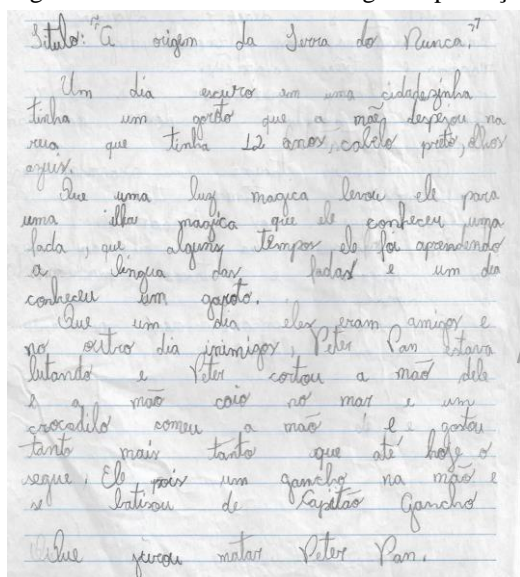 Título: "A origem da Terra do Nunca."
Um dia escuro em uma cidadezinha
tinha um garoto que a mãe despejou na
rua que tinha 12 anos, cabelo preto, olhos
azuis.
Que uma luz magica levou ele para
uma ilha magica que ele conheceu uma
fada, que alguns tempos ele foi aprendendo
a língua das fadas e um dia
conheceu um garoto.
Que um dia eles eram amigos e
no outro dia inimigos, Peter Pan estava
lutando e Peter cortou a mão dele
e a mão caio no mar e um
crocodilo comeu a mão e gostou
tanto mais tanto que até hoje o
segue. Ele pois um gancho na mão e
se batisou de Capitão Gancho
Que jurou matar Peter Pan.